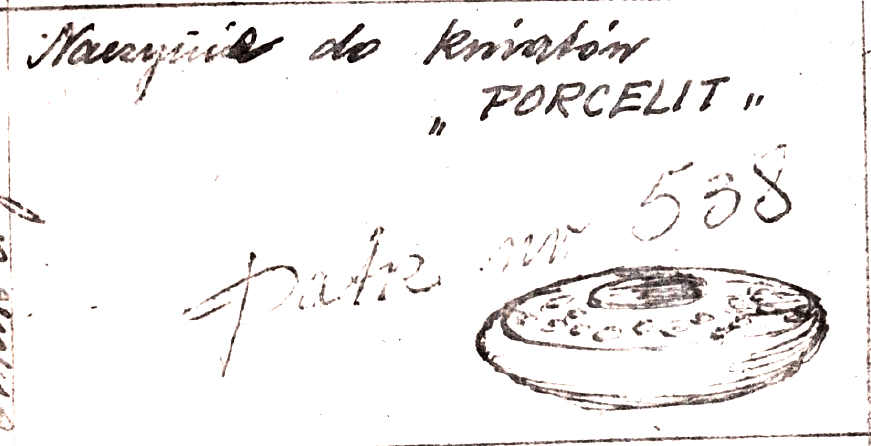 Naczynie do kwiatów
„PORCELIT”
patrz nr 538